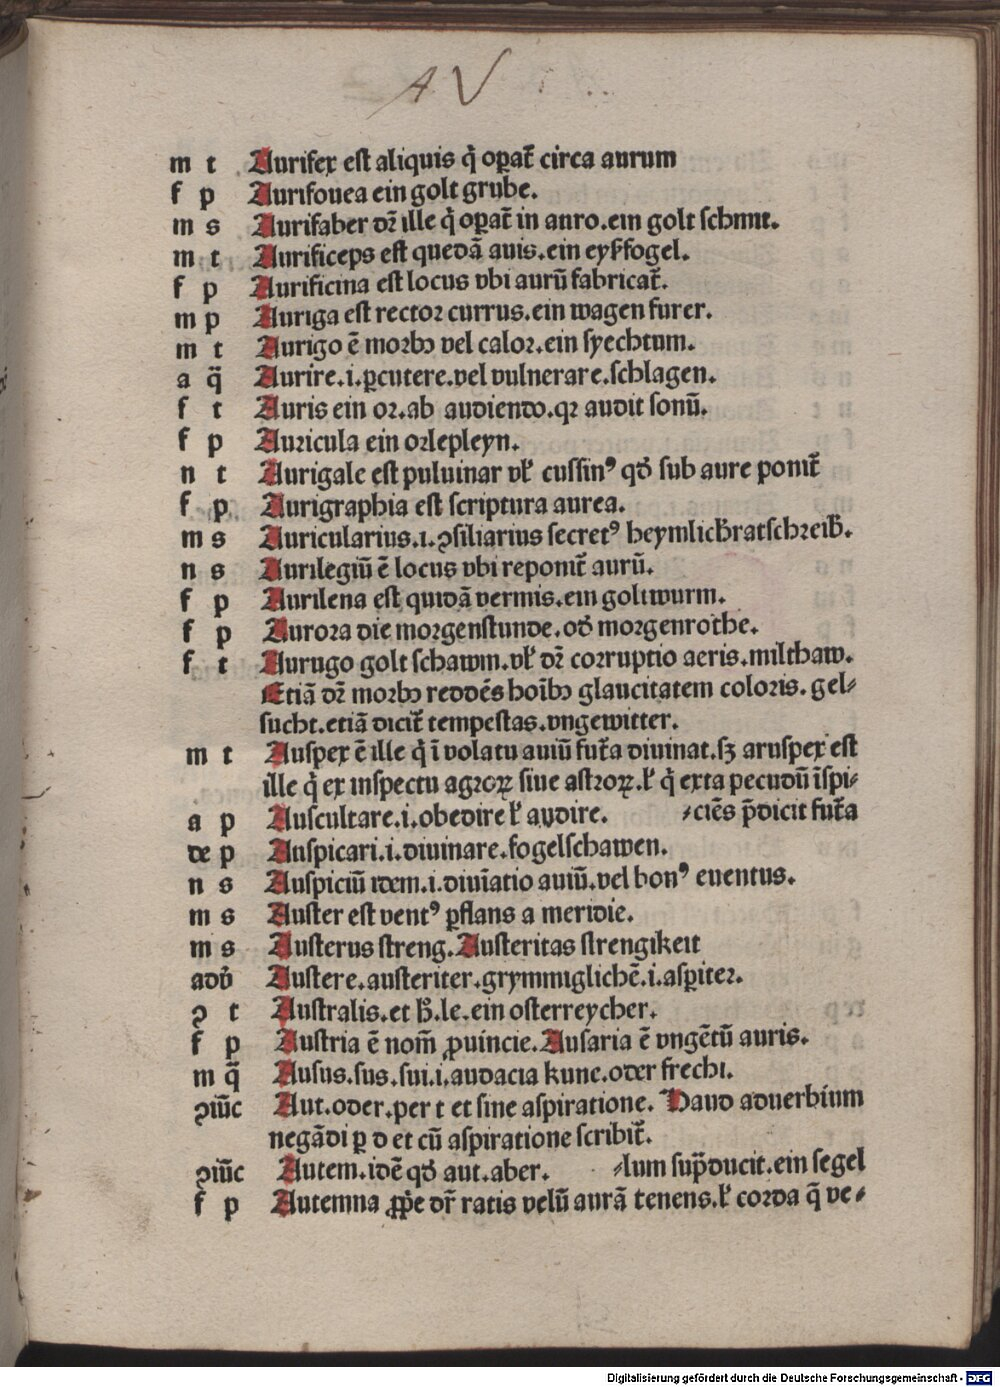 A V
m t Aurifex est aliquis q̇ oꝑat̃ circa aurum
f p Aurifouea ein golt grube.
m s Aurifaber dꝛ̃ ille q̇ oꝑat̃ in auro.ein golt schmit.
m t Aurificeps est quedã auis.ein eyßfogel.
f p Aurificina est locus vbi aurũ fabricat̃.
m p Auriga est rectoꝛ currus.ein wagen furer.
m t Aurigo ẽ moꝛbꝰ vel caloꝛ.ein syechtum.
a q̃ Aurire.i.ꝑcutere.vel vulnerare.schlagen.
f t Auris ein oꝛ.ab audiendo.qꝛ audit sonũ.
f p Auricula ein oꝛlepleyn.
n t Aurigale est puluinar vl̓ cussinꝰ qd̓ sub aure ponit̃
f p Aurigraphia est scriptura aurea.
m s Auricularius.i.ꝯsiliarius secretꝰ heymlich̓ratschꝛeib̓.
n s Aurilegiũ ẽ locus vbi reponit̃ aurũ.
f p Aurilena est quidã vermis.ein goltwurm.
f p Aurora die moꝛgenstunde.od̓ moꝛgenrothe.
f t Aurugo golt schawm.vl̓ dꝛ̃ coꝛruptio aeris.milthaw.
Etiã dꝛ̃ moꝛbꝰ reddẽs hoĩbꝰ glaucitatem coloꝛis.gel⸗
sucht.etiã dicit̃ tempestas.vngewitter.
m t Auspex ẽ ille q̇ ĩ volatu auiũ fut̃a diuinat.sꝫ aruspex est
ille q̇ ex inspectu agroꝝ siue astroꝝ.l̓ q̇ exta pecudũ ĩspi⸗
a p Auscultare.i.obedire l̓ audire. ⸗ciẽs p̃dicit fut̃a
de p Auspicari.i.diuinare.fogelschawen.
n s Auspiciũ idem.i.diuĩatio auiũ.vel bonꝰ euentus.
m s Auster est ventꝰ ꝑflans a meridie.
m s Austerus streng.Austeritas strengikeit
adv̓ Austere.austeriter.grymmiglichẽ.i.asꝑiteꝛ.
ꝯ t Australis.et h̓.le.ein osterreycher.
f p Austria ẽ nom̃ ꝓuincie.Ausaria ẽ vngẽtũ auris.
m q̃ Ausus.sus.sui.i.audacia kune.oder frecht.
ꝯiũc Aut.oder.per t et sine aspiratione. Haud aduerbium
negãdi ꝑ d et cũ aspiratione scribit̃.
ꝯiũc Autem.idẽ qd̓ aut.aber. ⸗lum sup̃ducit.ein segel
f p Autemna ꝓpͥe dr̃ ratis velũ aurã tenens.l̓ coꝛda q̃ ve⸗
Digitalisierung gefördert durch die Deutsche Forschungsgemeinschaft - DFG